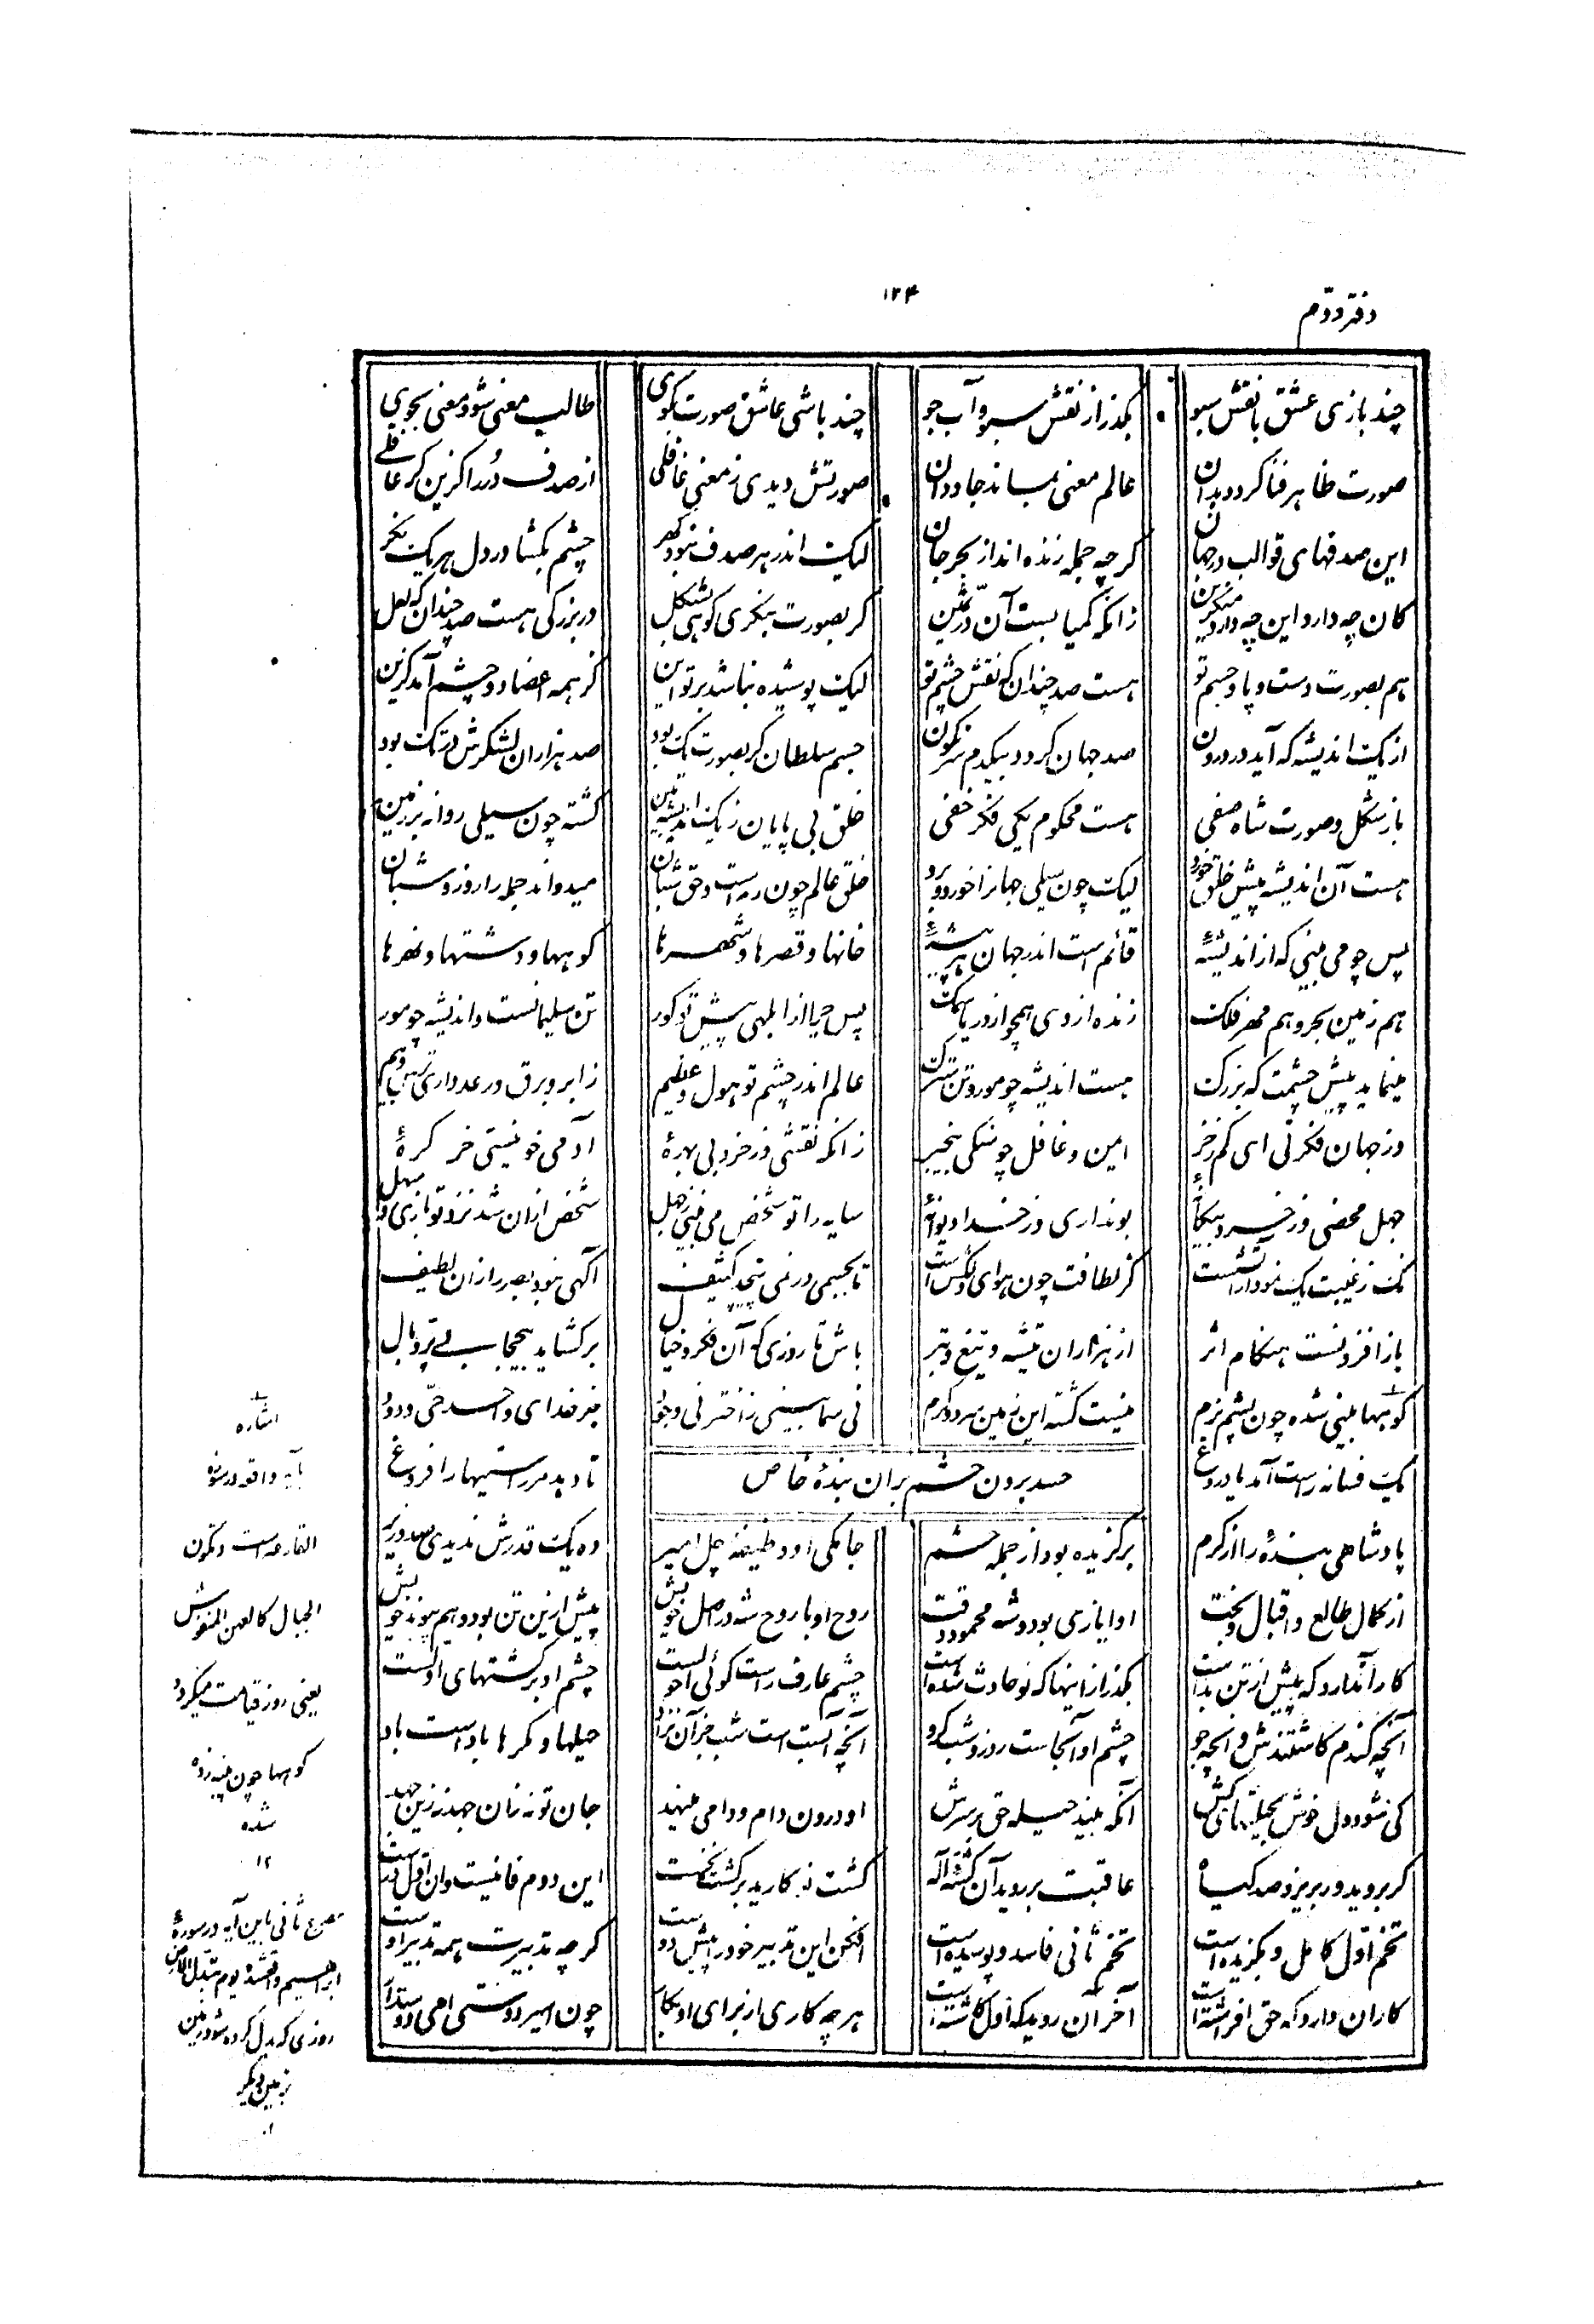 دفتر دوّم
۱۲۴
چند بازی عشق با نقش سبو بگذر از نقش سبو و آب جو چند باشی عاشق صورت بگوی طالب معنی شو و معنی بجوی
صورت ظاهر فنا گردد بدان عالم معنی بماند جاودان صورتش دیدی ز معنی غافلی از صدف دُر را گزین گر عاقلے
این صدفهای قوالب در جهان گرچه جمله زنده اند از بحر جان لیک اندر هر صدف نبود گهر چشم بگشا در دل هر یک نگر
کان چه دارد این چه دارد میگزین زانکه کمیابست آن دُرّ ثمین گر بصورت بنگری کوهی بشکل در بزرگی هست صد چندان که لعل
هم بصورت دست و پا و جسم تو هست صد چندان که نقش چشم تو لیک پوشیده نباشد بر تو این کز همه اعضا دو چشم آمد گزین
از یک اندیشه که آید در درون صد جهان گردد بیکدم سرنگون جسم سلطان گر بصورت یک بود صد هزاران لشکرش در تک بود
باز شکل و صورت شاه صفی هست محکوم یکی فکر خفی خلق بی پایان ز یک اندیشه بین گشته چون سیلی روانه بر زمین
هست آن اندیشه پیش خلق خرد لیک چون سیلی جهانرا خورد و برد خلق عالم چون رمه است و حق شبان میدواند جمله را روز و شبان
پس چو می بینی که از اندیشهٔ قائم است اندر جهان هر پیشهٔ خانها و قصرها و شهرها کوهها و دشتها و نهرها
هم زمین بحر و هم مهر فلک زنده از وی همچو از دریا سمک پس چرا از ابلهی پیش تو کور تن سلیمانست و اندیشه چو مور
مینماید پیش چشمت که بزرگ هست اندیشه چو مور و تن سترگ عالم اندر چشم تو هول و عظیم ز ابر و برق و رعد داری ترس و بیم
وز جهان فکرتی ای کم ز خر ایمن و غافل چو سنگی بیخبر زانکه نقشی وز خرد بی بهرهٔ آدمی خو نیستی خر کرهٔ
جهل محضی وز خرد بیگانهٔ بو نداری وز خدا دیوانهٔ سایه را تو شخص می بینی ز جهل شخص ازان شد نزد تو بازی و سهل
یک ز غیبت یک نمودار آتشست کز لطافت چون هوای دلکش است تا بجسمی در نمی پیچد کثیف آگهی نبود بصر را زان لطیف
باز افزونست هنگام اثر از هزاران تیشه و تیغ و تبر باش تا روزی که آن فکر و خیال بر گشاید بیحجابے پرّ و بال
کوهها بینی شده چون پشم نرم نیست گشته این زمین سرد و گرم نی سما بینی نه اختر نی وجود غیر خدای واحد حیّ ودود
یک فسانه راست آمد یا دروغ تا دهد مر راستیها را فروغ
حسد بردن حشم بران بندهٔ خاص
پادشاهی بندهٔ را از کرم برگزیده بود از جمله حشم جامگی او وظیفهٔ چل امیر ده یک قدرش ندیدی صد وزیر
از کمال طالع و اقبال و بخت او ایازی بود و شه محمود وقت روح او با روح شه در اصل خویش پیش ازین تن بود و هم پیوند خویش
کار آندارد که پیش از تن بداست بگذر از اینها که نو حادث شده است چشم عارف راست گوئی احولست چشم او بر کشتهای اولست
آنچه گندم کاشتندش و آنچه جو چشم او آنجاست روز و شب گرو آنچه آبست است شب جز آن نزاد حیلها و مکرها باد است باد
کی شود دل خوش بحیلتهای گش آنکه بیند حیله حق بر سرش او درون دام و دامی مینهد جان تو نه زان جهد نه زین جهد
گر بروید ور بریزد صد گیاه عاقبت بر روید آن کشته آله کشت نو کارید بر کشت نخست این دوم فانیست وان اوّل درست
تخم اوّل کامل و بگزیده است تخم ثانی فاسد و پوسیده است افکن این تدبیر خود را پیش دوست گرچه تدبیرت همه تدبیر اوست
کار آن دارد که حق افراشته است آخر آن روید که اوّل کاشته است هرچه کاری از برای او بکار چون اسیر دوستی ای دوستدار
اشاره
بآیه واقع در سوره
القارعه است و تکون
الجبال کالعهن المنفوش
یعنی روز قیامت میگردد
کوهها چون پنبه زده
شده
۱۲
مصرع ثانی باین آیه در سورهٔ
ابراهیم واقع شده یوم تبدّل الارض
روزی که بدل کرده شود زمین
بزمین دیگر